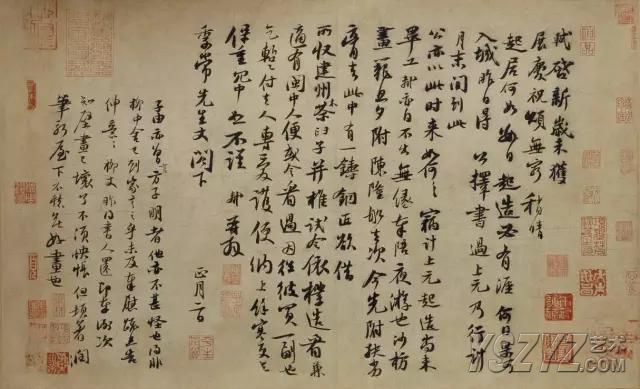 軾啟新歲未獲
展慶祝頌無窮稍晴
起居何如數日起造必有涯何日果可
入城昨日得公擇書過上元乃行計
月末間到此
公亦以此時來如何〻竊計上元起造尚未
畢工軾亦自不出無緣奉陪夜游也沙枋
畫籠旦夕附陳隆船去次今先附扶劣
膏去此中有一鑄銅匠欲借
所收建州木茶臼子并椎試令依樣造看兼
適有閩中人便或令看過因往彼買一副也
乞暫付去人專愛護便納上餘寒更乞
保重冗中恕不謹軾再拜
季常先生丈閣下
正月二日
子由亦曾言方子明者他亦不甚怪也得非
柳中舍已到家言之乎未及奉慰疏且告
伸意〻柳丈昨得書人還即奉謝次
知壁畫已壞了不須怏悵但頓著潤
筆新屋下不愁無好畫也
YSZYZ.艺术